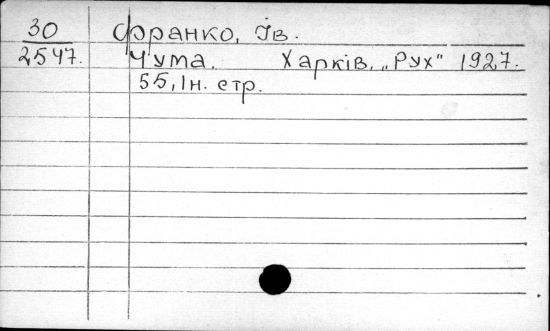 30 Франко, Ів.
2547. Чума. Харків, „Рух" 1927.
55, Iн. стр.